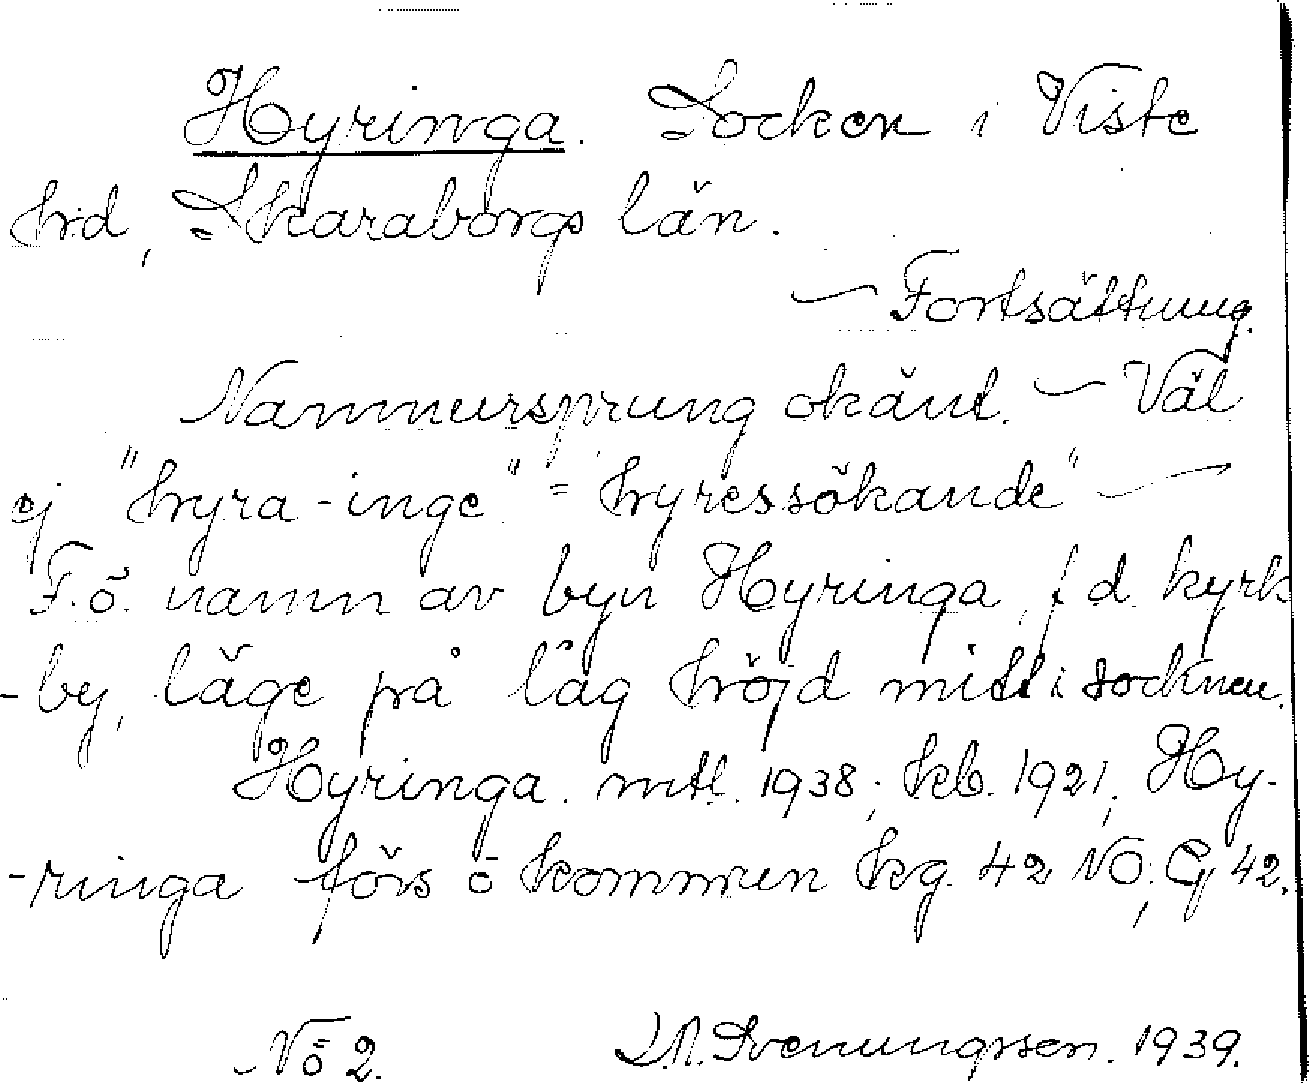 Hyringa. Socken i Viste
hrd, Skaraborgs län.
— Fortsättning.
Namnursprung okänt. — Väl
ej "hyra-inge" = hyressökande" —
F.ö. namn av byn Hyringa, f d. kyrk
-by, läge på låg höjd mitt i socknen.
Hyringa. mtl. 1938; kb. 1921, Hy-
-ringa förs o kommun kg. 42 NO; G 42.
No 2.
Svenungsson. 1939.